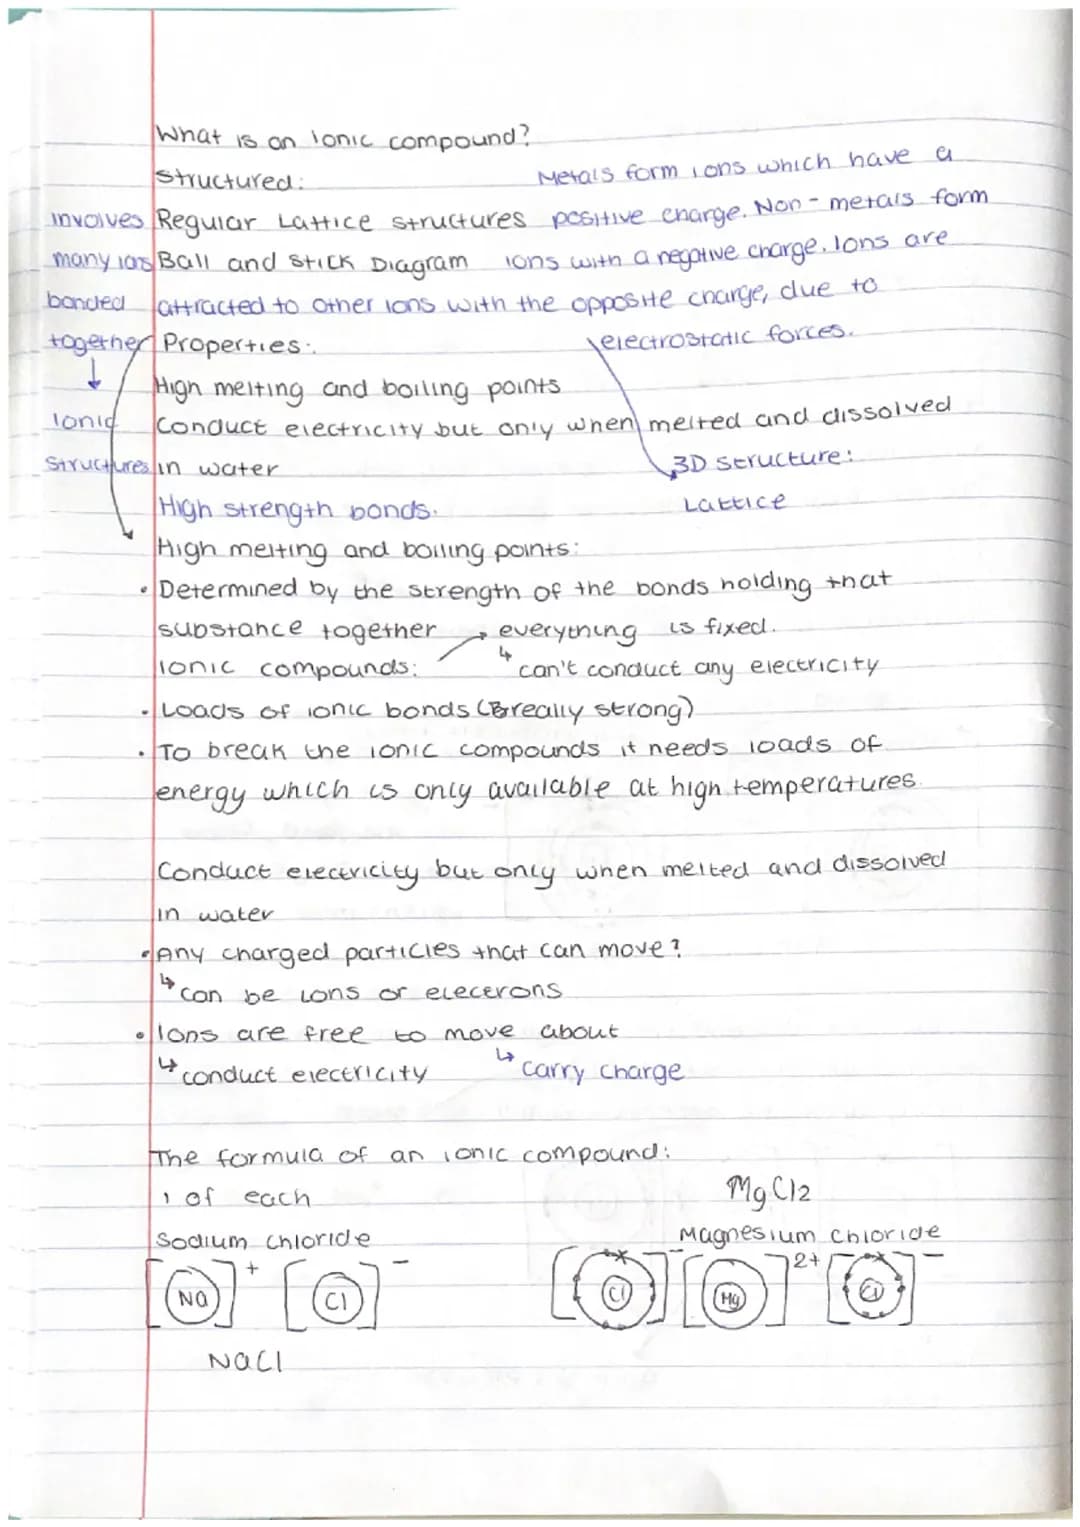 What is an Ionic compound?
Structured:
Metals form ions which have a
involves Regular Lattice structures positive charge. Non-metals form
many ions Ball and stick Diagram ions with a negative charge. Ions are
bonded attracted to other ions with the opposite charge, due to
together Properties: electrostatic forces.
↓ High melting and boiling points
Ionic Conduct electricity but only when melted and dissolved
Structures in water 3D structure:
High strength bonds. Lattice
High melting and boiling points:
• Determined by the strength of the bonds holding that
substance together → everything is fixed.
Ionic compounds: ↳ can't conduct any electricity
• Loads of ionic bonds (really strong)
• To break the ionic compounds it needs loads of
energy which is only available at high temperatures.
Conduct electricity but only when melted and dissolved
in water
• Any charged particles that can move?
↳ can be ions or elecerons
• Ions are free to move about
↳ conduct electricity ↳ carry charge
The formula of an ionic compound:
1 of each MgCl2
Sodium chloride Magnesium chloride
[Na]+ [Cl]- [Cl]- [Mg]2+ [Cl]-
NaCl